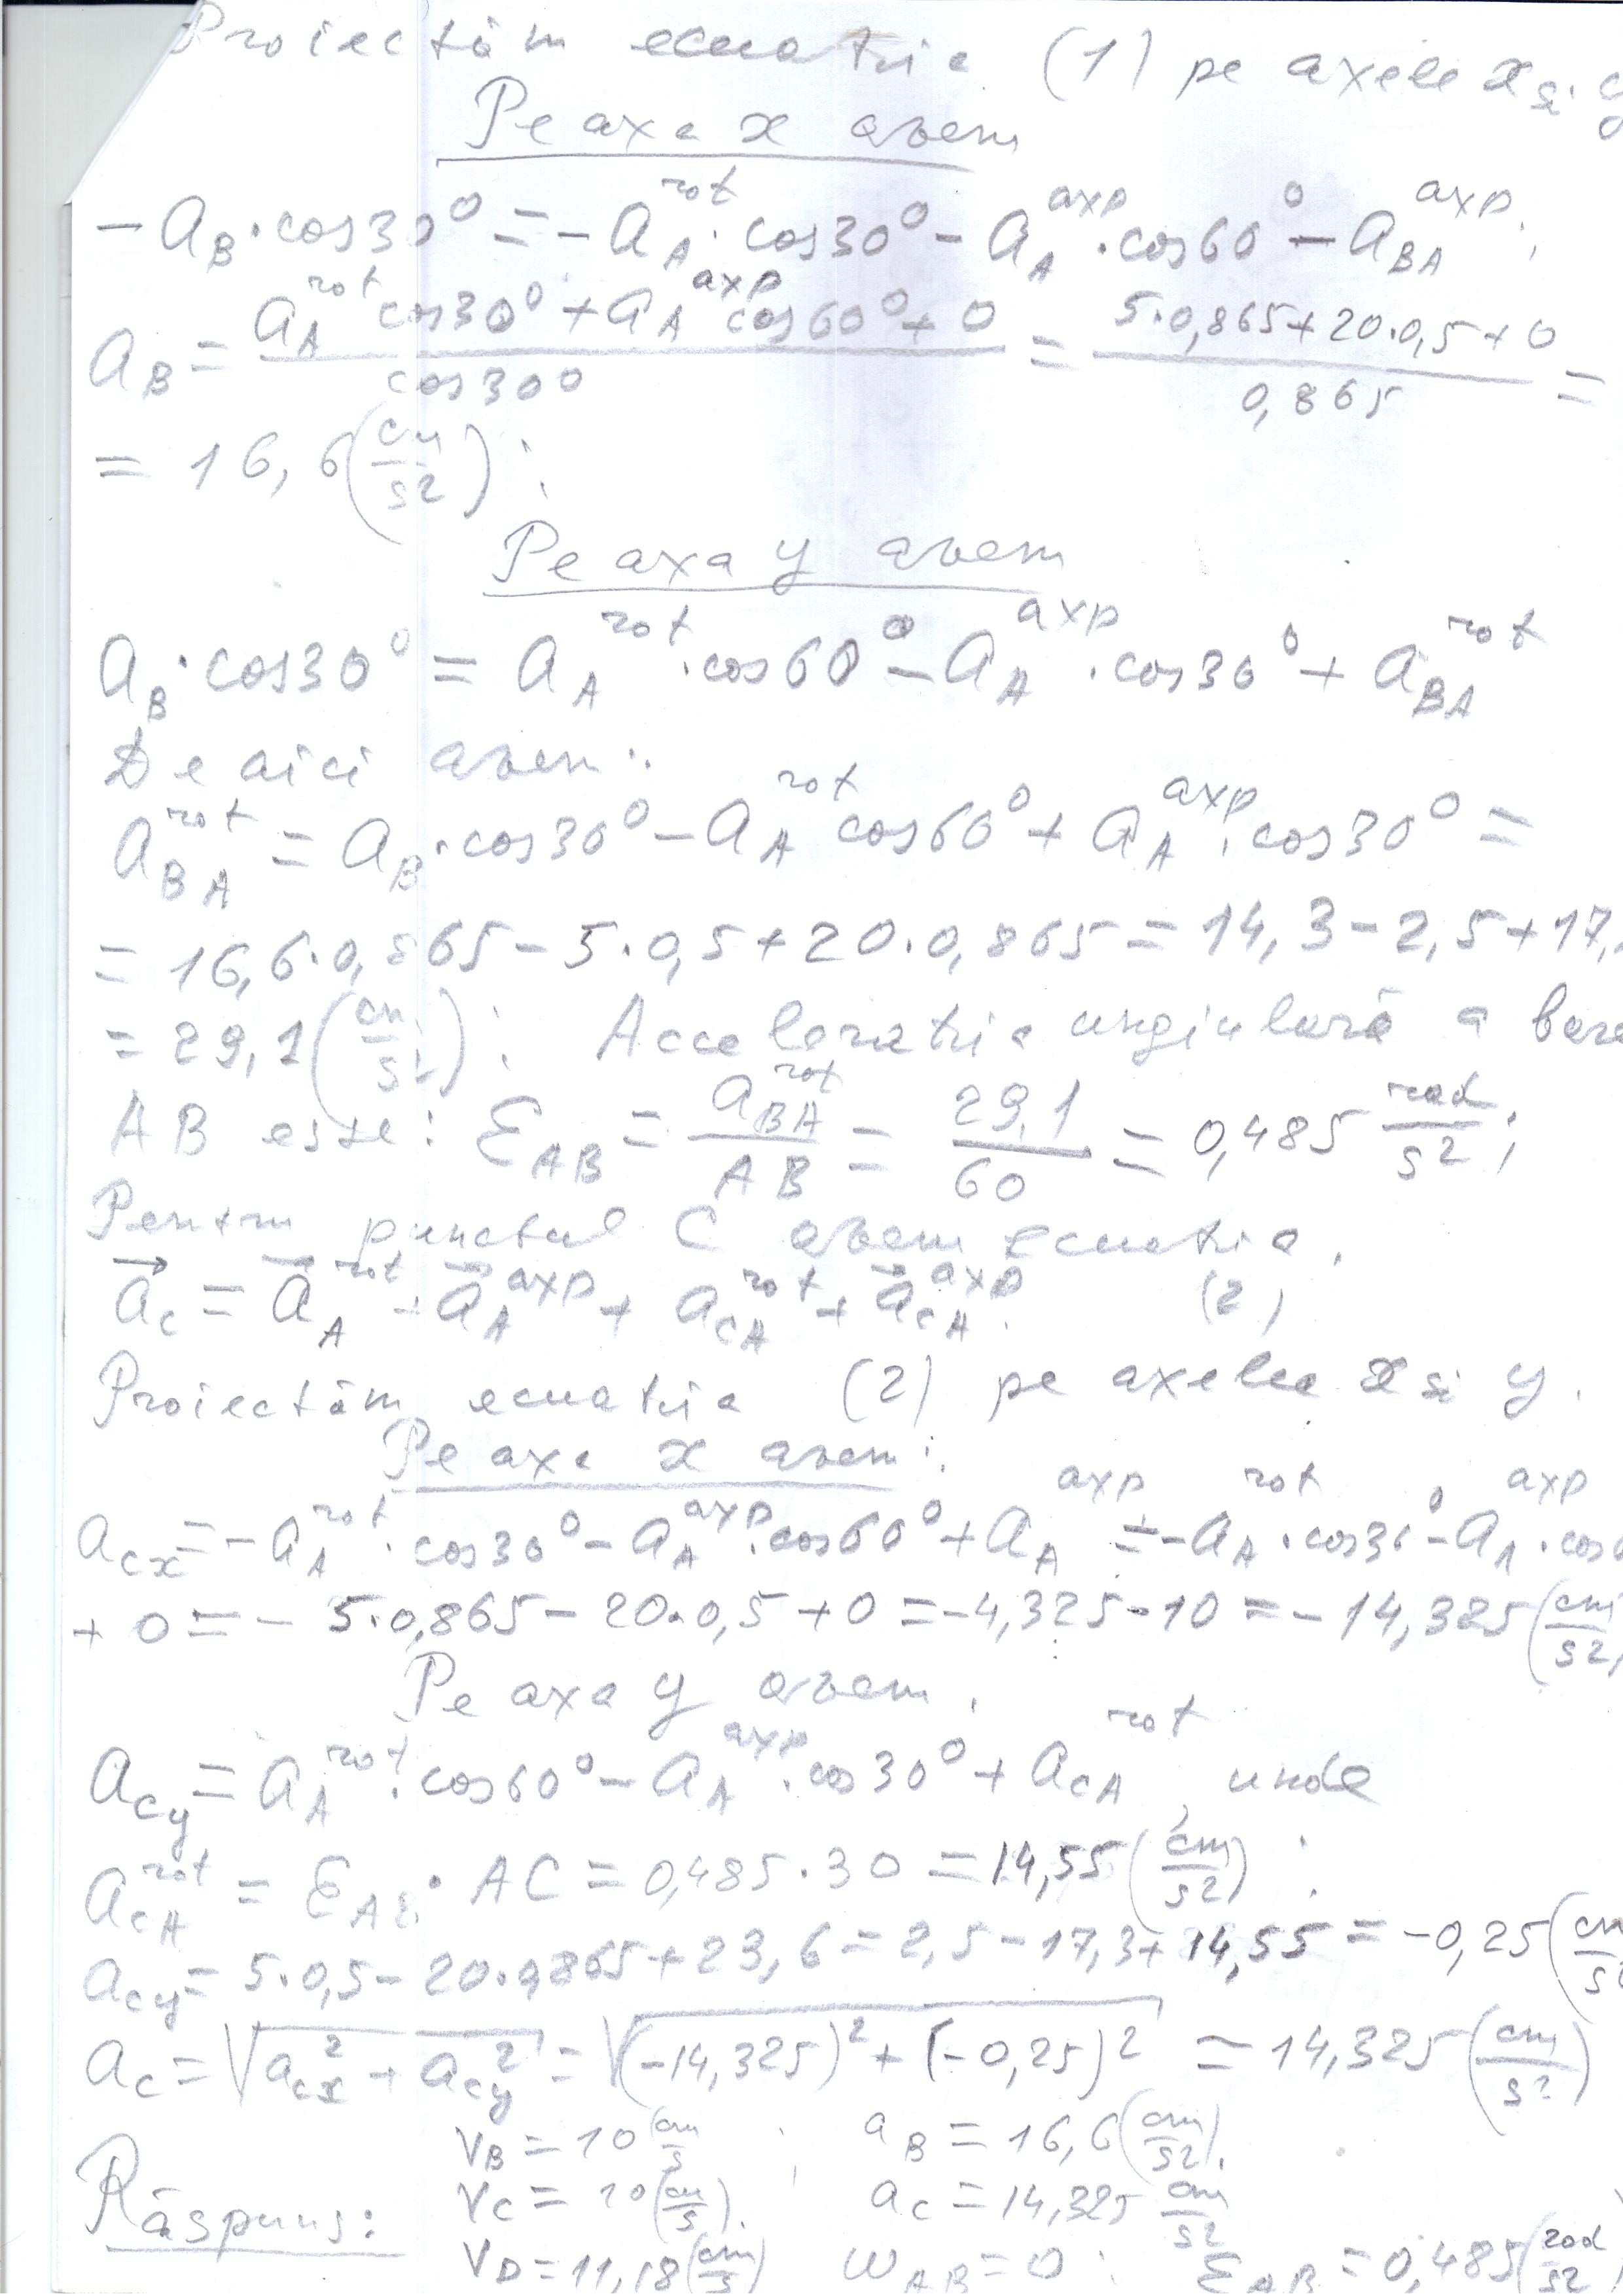 Proiectăm ecuația (1) pe axele x și y
Pe axa x avem
- a_B · cos30° = - a_A^rot · cos30° - a_A^axp · cos60° - a_BA^axp ;
a_B = (a_A^rot cos30° + a_A^axp cos60° + 0) / cos30° = (5·0,865 + 20·0,5 + 0) / 0,865 =
= 16,6 (cm/s²) ;
Pe axa y avem
a_B · cos30° = a_A^rot · cos60° - a_A^axp · cos30° + a_BA^rot
De aici avem:
a_BA^rot = a_B · cos30° - a_A^rot cos60° + a_A^axp · cos30° =
= 16,6·0,865 - 5·0,5 + 20·0,865 = 14,3 - 2,5 + 17,
= 29,1 (cm/s²) ; Accelerația unghiulară a bare
AB este: ε_AB = a_BA^rot / AB = 29,1 / 60 = 0,485 rad/s² ;
Pentru punctul C avem ecuația
a_C = a_A^rot + a_A^axp + a_CA^rot + a_CA^axp . (2)
Proiectăm ecuația (2) pe axele x și y.
Pe axa x avem:
a_Cx = - a_A^rot · cos30° - a_A^axp · cos60° + a_A^axp = - a_A^rot · cos30° - a_A^axp · cos
+ 0 = - 5·0,865 - 20·0,5 + 0 = -4,325 - 10 = - 14,325 (cm/s²)
Pe axa y avem.
a_Cy = a_A^rot · cos60° - a_A^axp · cos30° + a_CA^rot , unde
a_CA^rot = ε_AB · AC = 0,485·30 = 14,55 (cm/s²) ;
a_Cy = 5·0,5 - 20·0,865 + 23,6 = 2,5 - 17,3 + 14,55 = -0,25 (cm/s²
a_C = √(a_Cx² + a_Cy²) = √((-14,325)² + (-0,25)²) = 14,325 (cm/s²)
V_B = 10 (cm/s ; a_B = 16,6 (cm/s²).
Răspuns: V_C = 10 (cm/s). a_C = 14,325 cm/s²
V_D = 11,18 (cm/s) ω_AB = 0 ; ε_AB = 0,485 (rad/s²